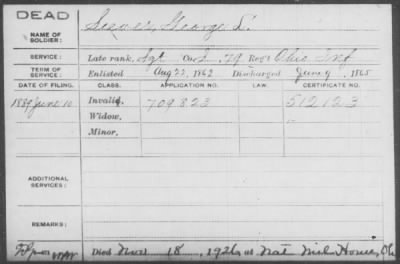 DEAD
NAME OF SOLDIER: George S.
SERVICE: Late rank, Sgt Co. I, 79 Reg't Ohio Inf
TERM OF SERVICE: Enlisted Aug 22, 1862 Discharged June 9, 1865
DATE OF FILING. CLASS. APPLICATION NO. LAW. CERTIFICATE NO.
1889 June 10 Invalid, 709823 512123
Widow,
Minor,
ADDITIONAL SERVICES:
REMARKS:
Died Nov 18, 1926, at Nat Mil Home, Oh